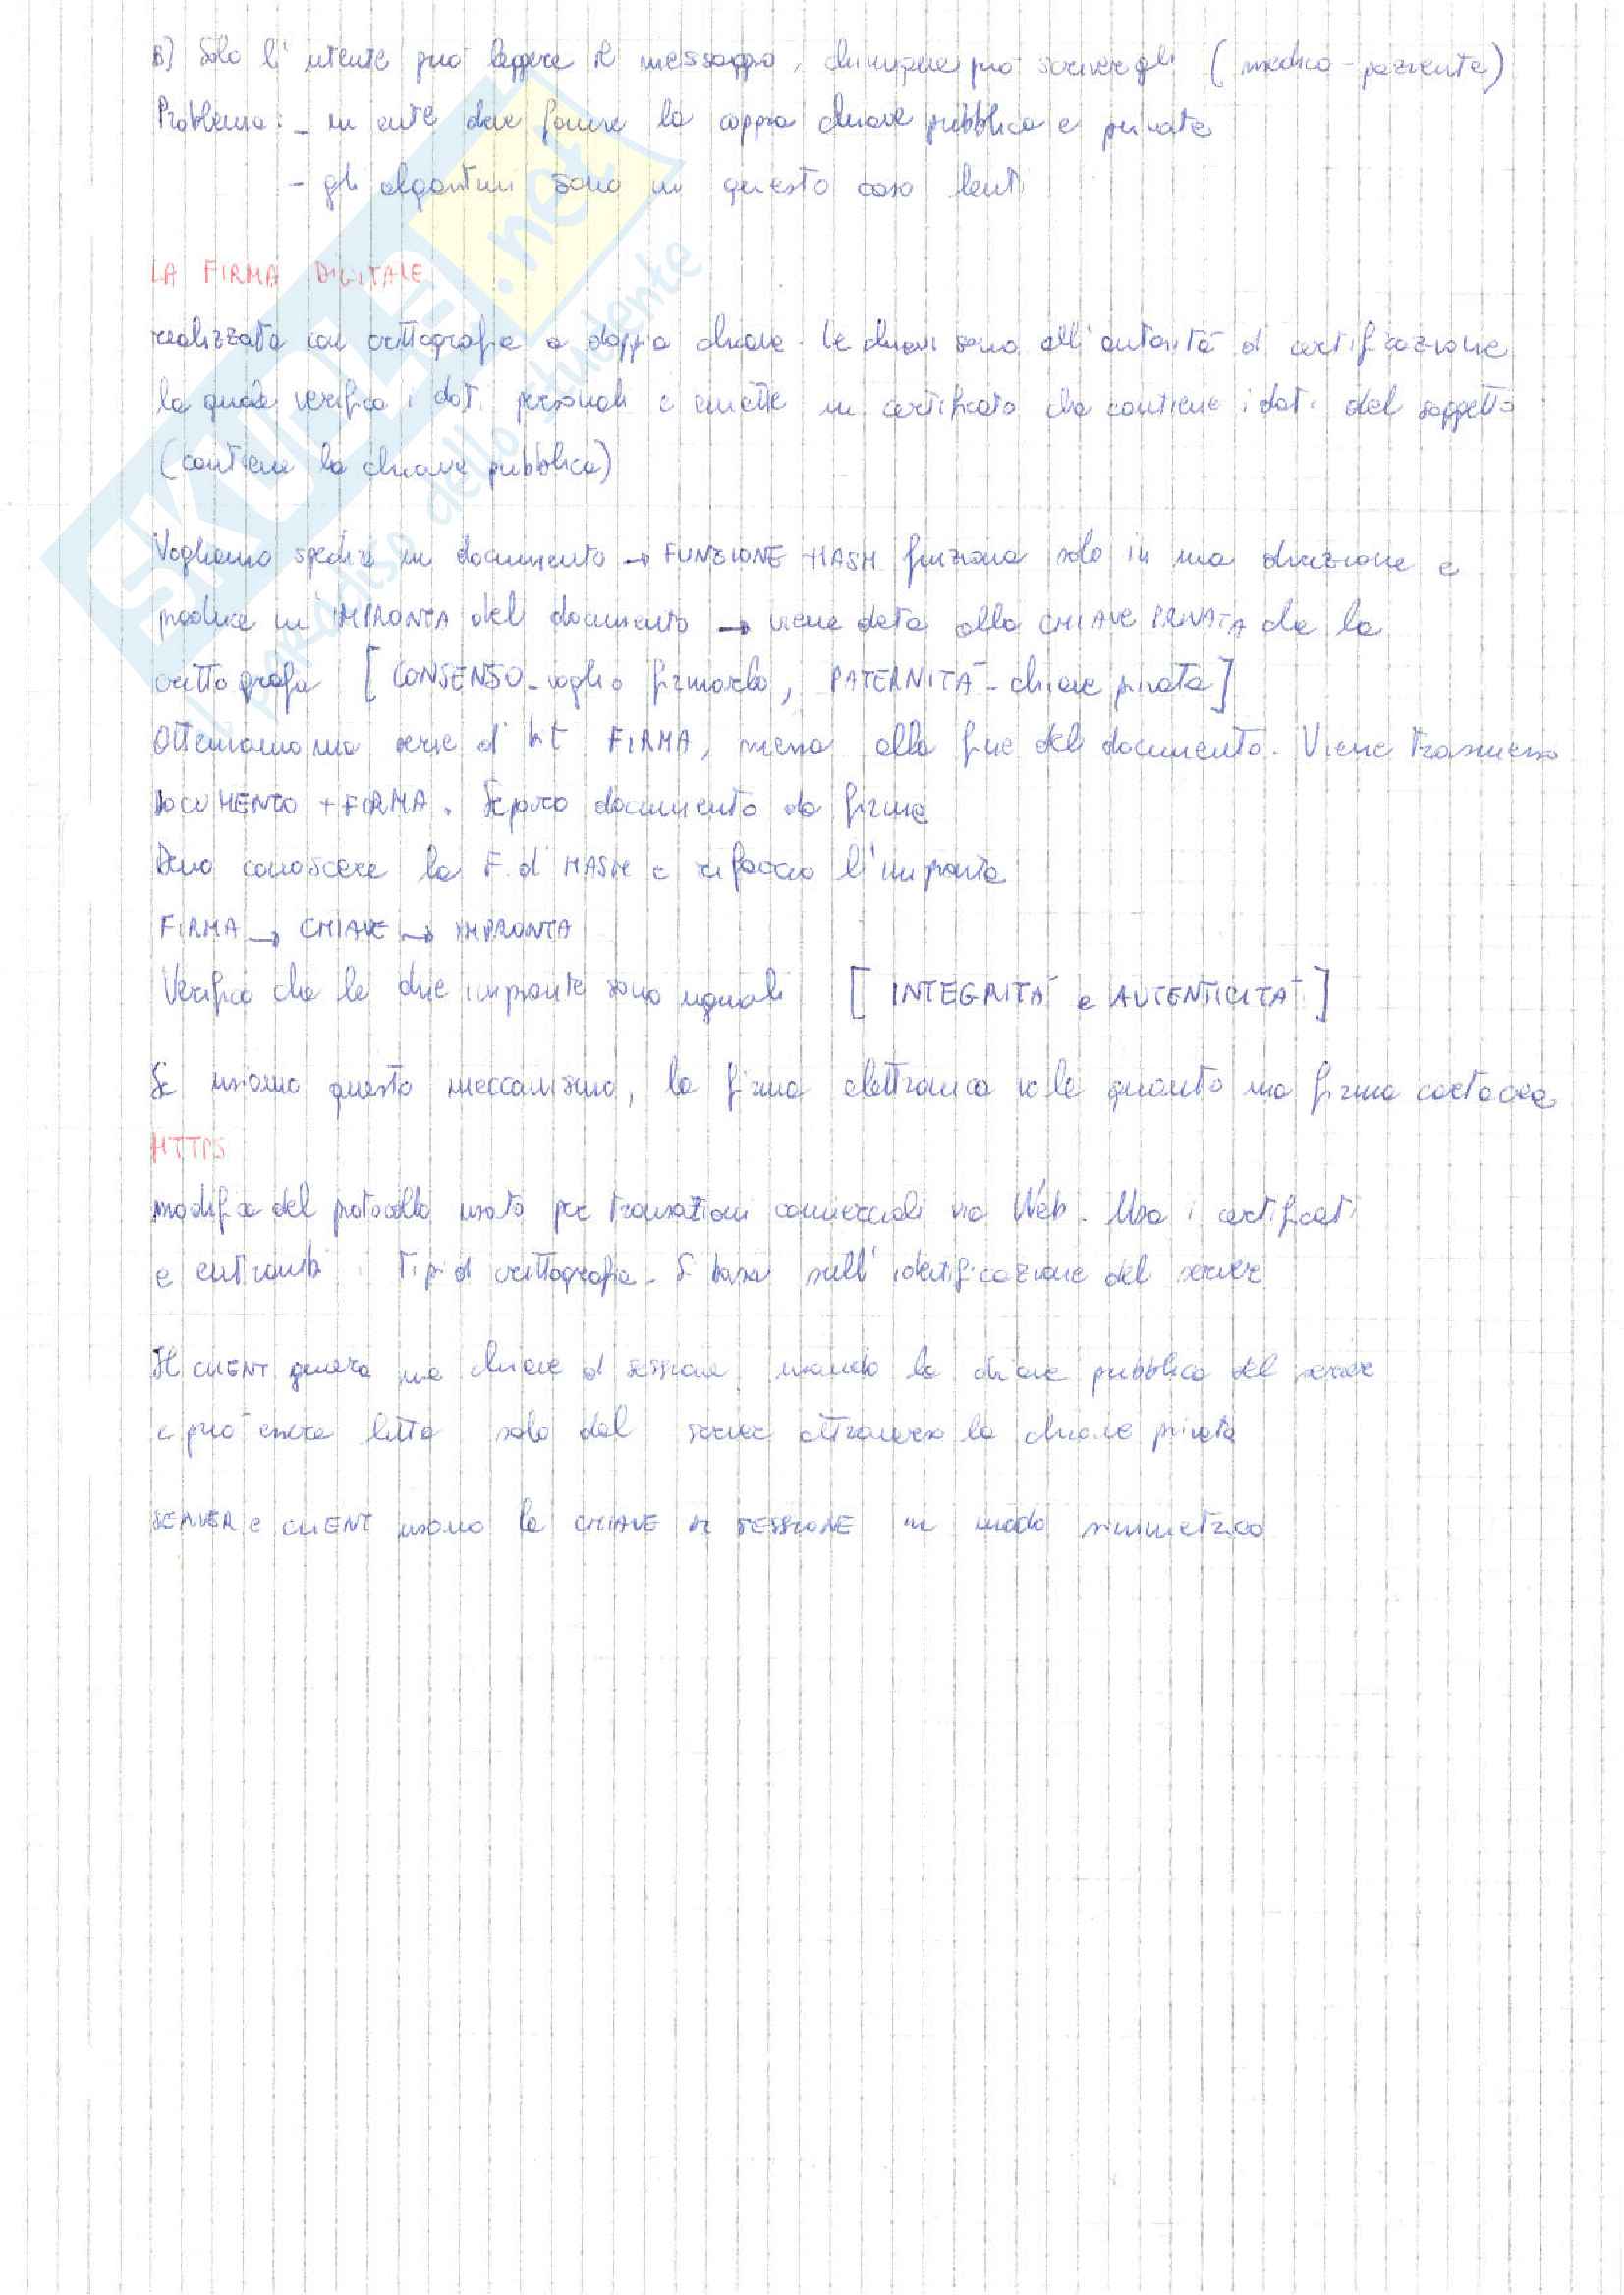 B) Solo l'utente può leggere il messaggio, chiunque può scrivergli (medico-paziente)
Problema: - un ente deve fornire la coppia chiave pubblica e privata
- gli algoritmi sono in questo caso lenti
LA FIRMA DIGITALE
realizzata con crittografia a doppia chiave. Le chiavi sono all'autorità di certificazione
la quale verifica i dati personali e emette un certificato che contiene i dati del soggetto
(contiene la chiave pubblica)
Vogliamo spedire un documento → FUNZIONE HASH funziona solo in una direzione e
produce un'IMPRONTA del documento → viene data alla CHIAVE PRIVATA che la
crittografa [CONSENSO - voglio firmarlo, PATERNITÀ - chiave privata]
Otteniamo una serie di bit FIRMA, messa alla fine del documento. Viene trasmesso
DOCUMENTO + FIRMA. Separo documento da firma
Devo conoscere la F. di HASH e rifaccio l'impronta
FIRMA → CHIAVE → IMPRONTA
Verifico che le due impronte sono uguali [INTEGRITÀ e AUTENTICITÀ]
Se usiamo questo meccanismo, la firma elettronica vale quanto una firma cartacea
HTTPS
modifica del protocollo usato per transazioni commerciali via Web. Usa i certificati
e entrambi i tipi di crittografia. Si basa sull'identificazione del server
Il CLIENT genera una chiave di sessione usando la chiave pubblica del server
e può essere letta solo dal server attraverso la chiave privata
SERVER e CLIENT usano la CHIAVE DI SESSIONE in modo simmetrico
SKUOLA.net
il paradiso dello studente